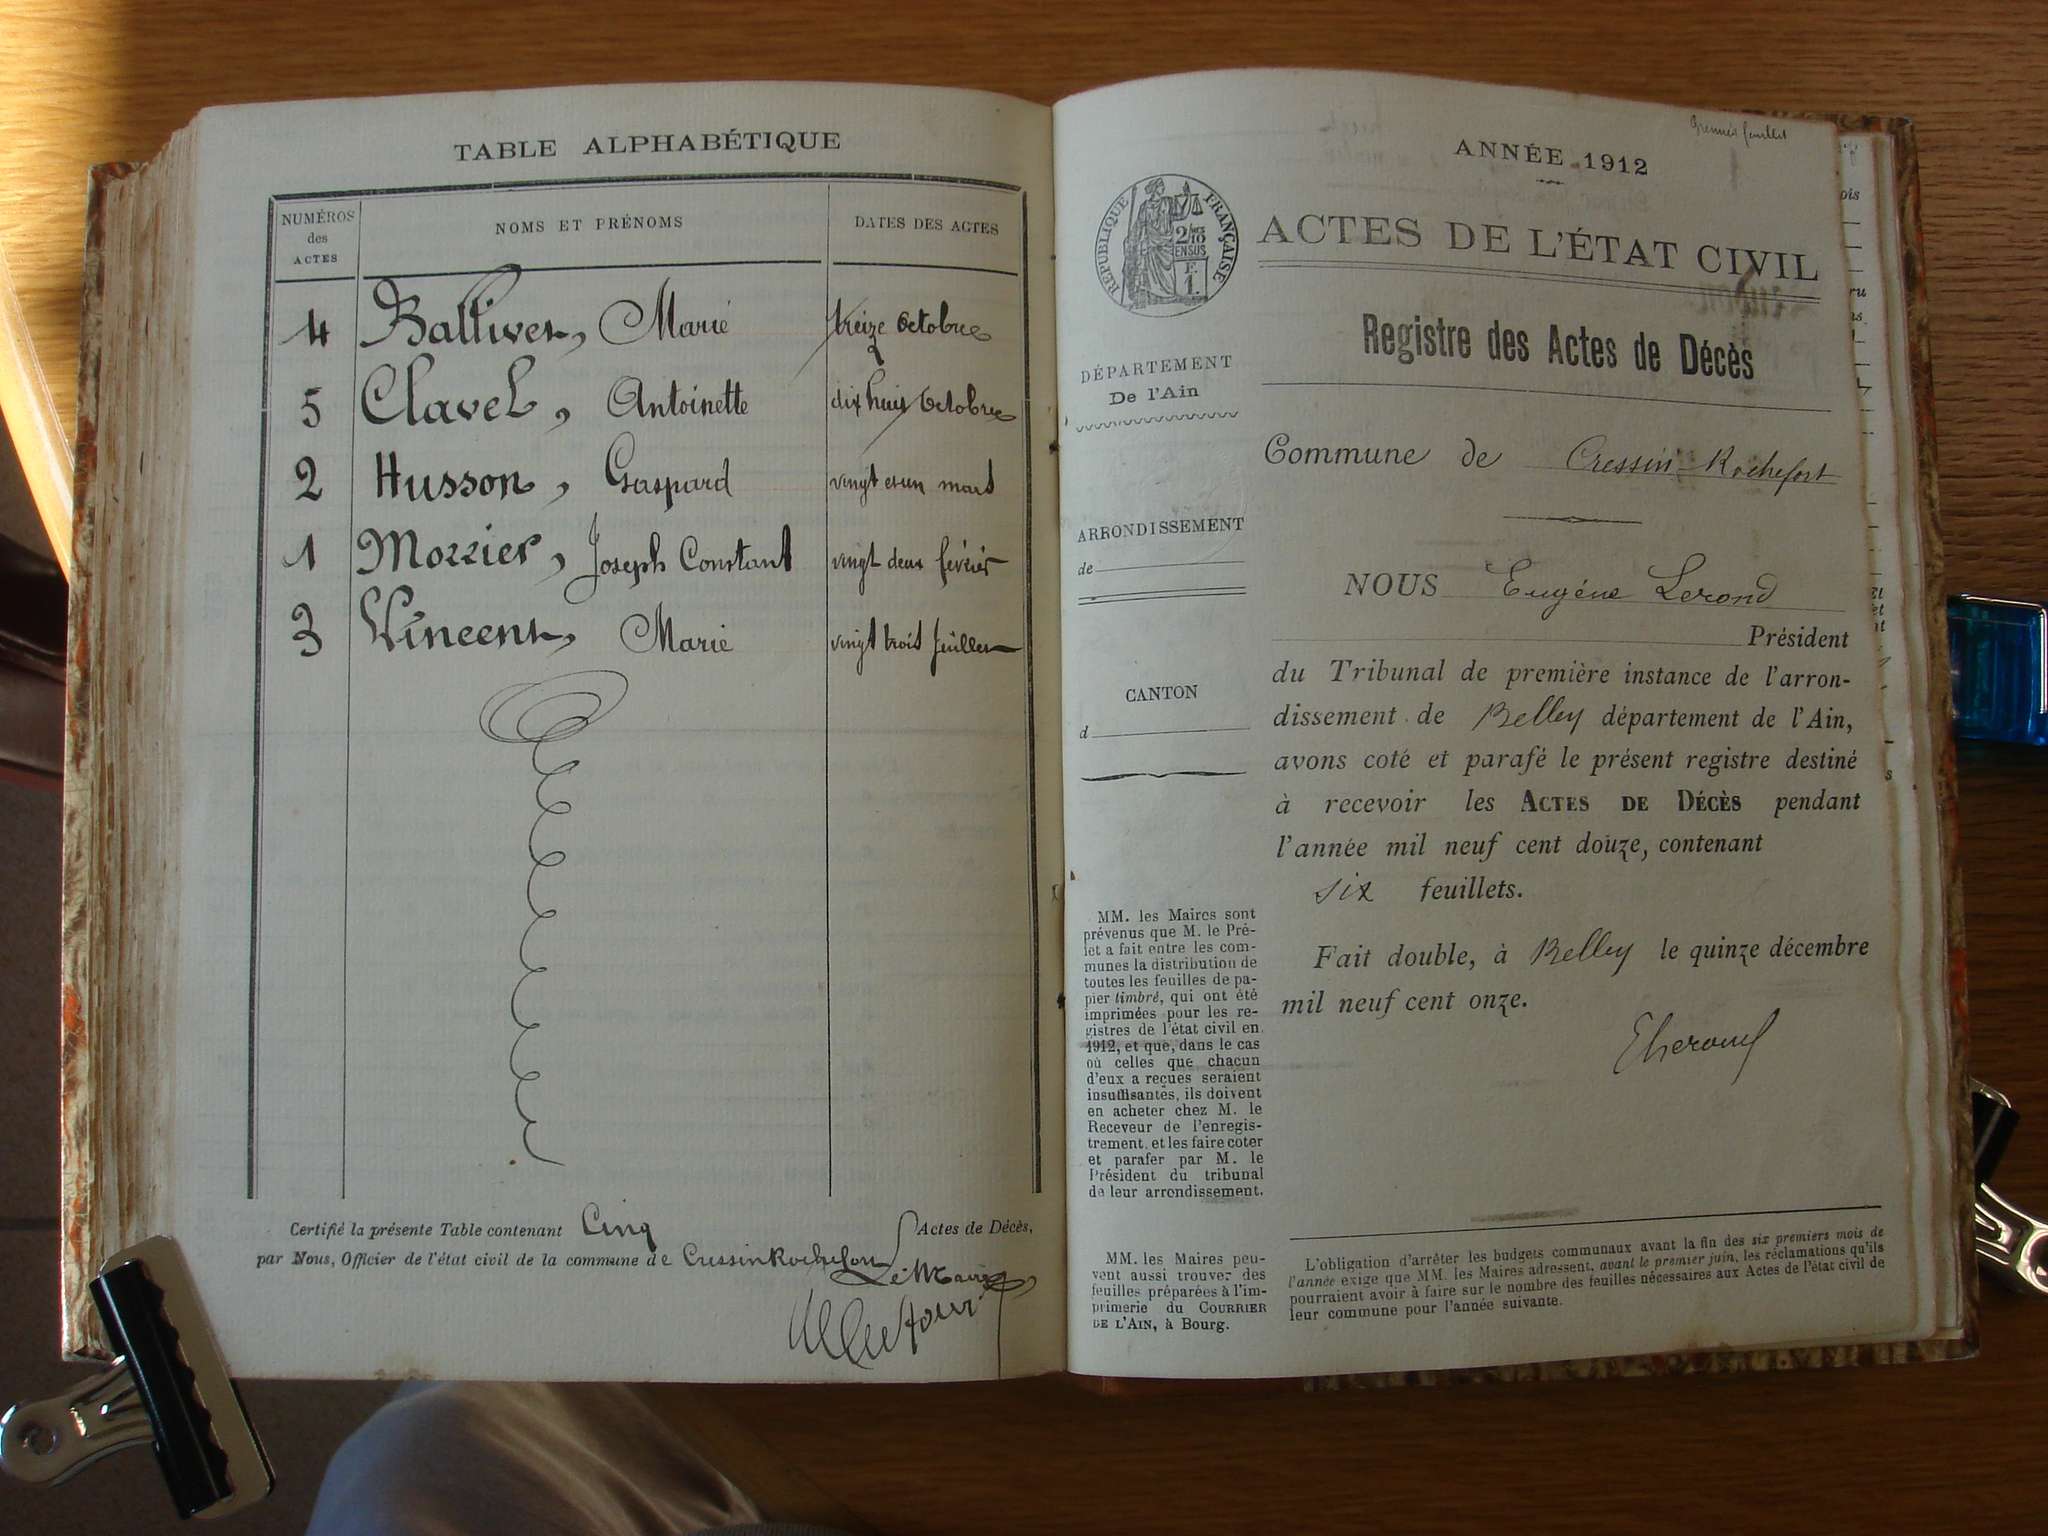 TABLE ALPHABÉTIQUE
NUMÉROS des ACTES NOMS ET PRÉNOMS DATES DES ACTES
4 Balliver, Marie treize Octobre
5 Clavel, Antoinette dix huit Octobre
2 Husson, Gaspard vingt et un mars
1 Mozzier, Joseph Constant vingt deux février
3 Vincent, Marie vingt trois Juillet
Certifié la présente Table contenant Cinq Actes de Décès,
par Nous, Officier de l'état civil de la commune de Cressin Rochefort
Le Maire
premier feuillet
ANNÉE 1912
RÉPUBLIQUE FRANÇAISE
ACTES DE L'ÉTAT CIVIL
Registre des Actes de Décès
DÉPARTEMENT
De l'Ain
Commune de Cressin-Rochefort
ARRONDISSEMENT
de
CANTON
d
NOUS Eugène Lerond
Président
du Tribunal de première instance de l'arron-
dissement de Belley département de l'Ain,
avons coté et parafé le présent registre destiné
à recevoir les ACTES DE DÉCÈS pendant
l'année mil neuf cent douze, contenant
six feuillets.
Fait double, à Belley le quinze décembre
mil neuf cent onze.
ELerond
MM. les Maires sont
prévenus que M. le Pré-
fet a fait entre les com-
munes la distribution de
toutes les feuilles de pa-
pier timbré, qui ont été
imprimées pour les re-
gistres de l'état civil en
1912, et que, dans le cas
où celles que chacun
d'eux a reçues seraient
insuffisantes, ils doivent
en acheter chez M. le
Receveur de l'enregis-
trement, et les faire coter
et parafer par M. le
Président du tribunal
de leur arrondissement.
MM. les Maires peu-
vent aussi trouver des
feuilles préparées à l'im-
primerie du COURRIER
DE L'AIN, à Bourg.
L'obligation d'arrêter les budgets communaux avant la fin des six premiers mois de
l'année exige que MM. les Maires adressent, avant le premier juin, les réclamations qu'ils
pourraient avoir à faire sur le nombre des feuilles nécessaires aux Actes de l'état civil de
leur commune pour l'année suivante.